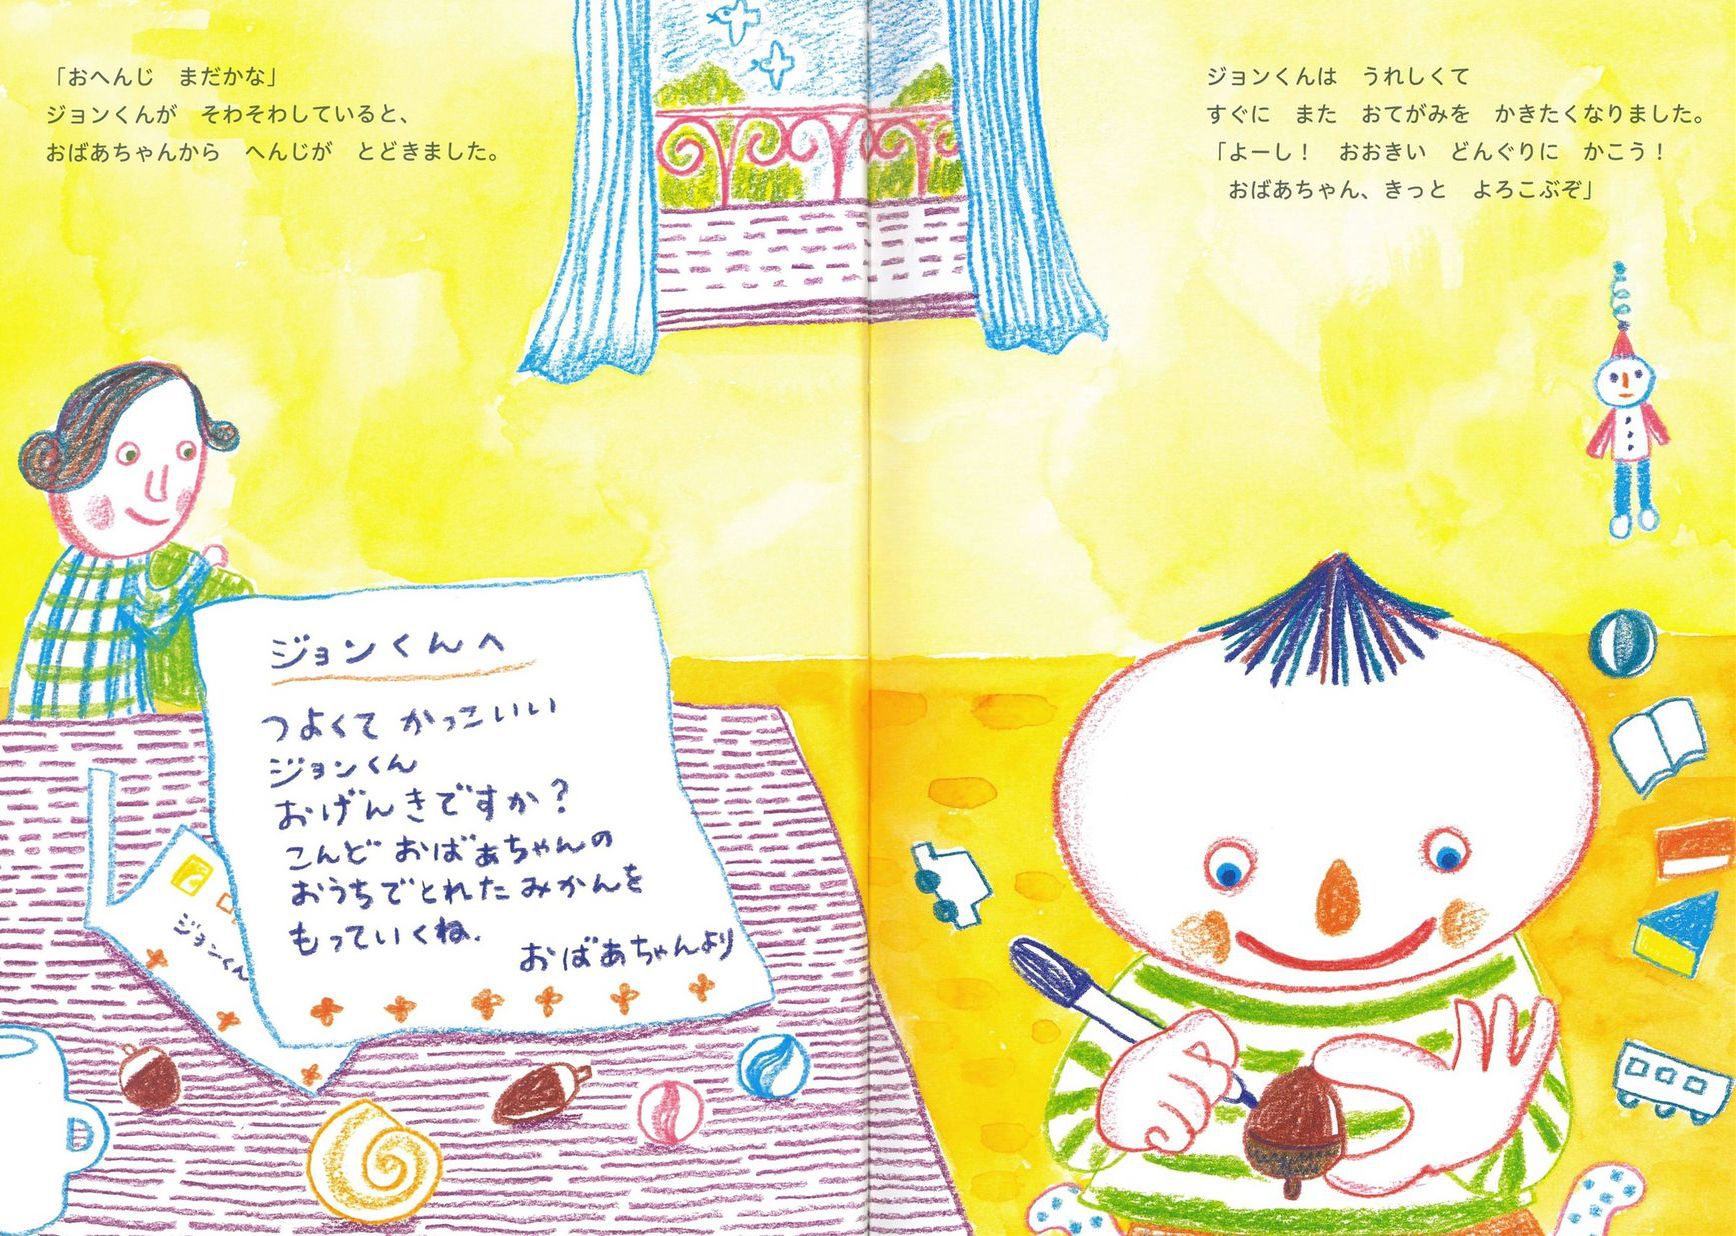 「おへんじ　まだかな」
ジョンくんが　そわそわしていると、
おばあちゃんから　へんじが　とどきました。
ジョンくんへ
つよくて かっこいい
ジョンくん
おげんきですか？
こんど おばあちゃんの
おうちでとれた みかんを
もっていくね.
おばあちゃんより
ジョンくん
ジョンくんは　うれしくて
すぐに　また　おてがみを　かきたくなりました。
「よーし！　おおきい　どんぐりに　かこう！
おばあちゃん、きっと　よろこぶぞ」